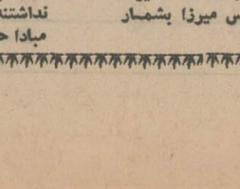 س میرزا بشمار
نداشتند
مبادا